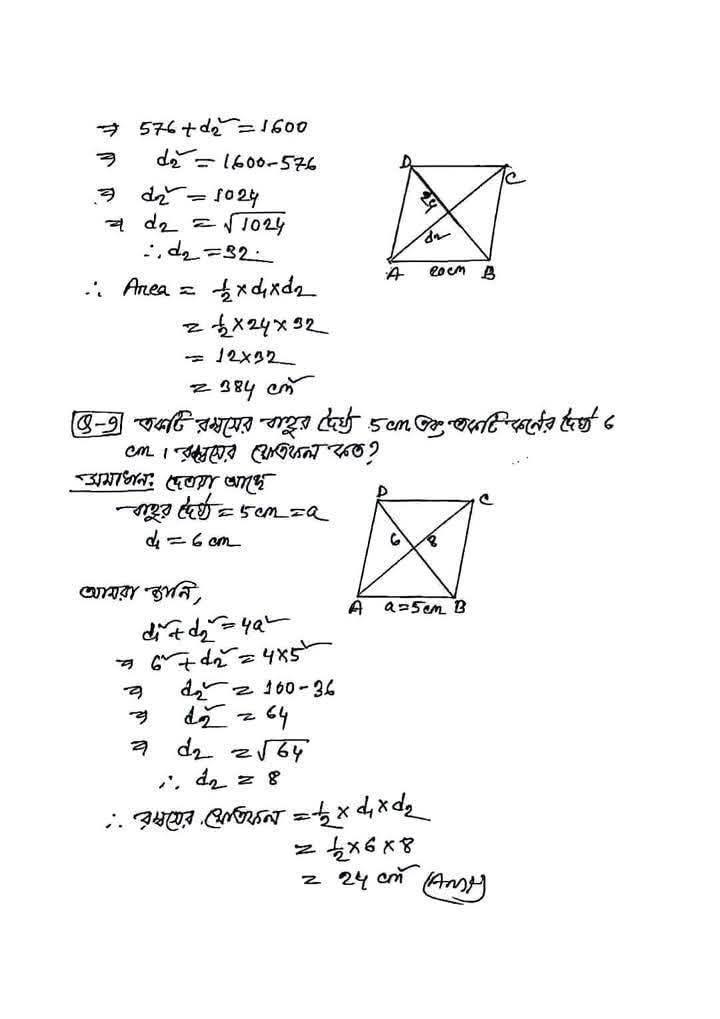 ⇒ 576 + d₂² = 1600
⇒ d₂² = 1600-576
⇒ d₂² = 1024
⇒ d₂ = √1024
∴ d₂ = 32.
D
C
24
d₂
A 20cm B
∴ Area = ½ × d₁ × d₂
= ½ × 24 × 32
= 12 × 32
= 384 cm²
Q-9 একটি রম্বসের বাহুর দৈর্ঘ্য 5 cm এবং একটি কর্নের দৈর্ঘ্য 6
cm । রম্বসের ক্ষেত্রফল কত?
সমাধান: দেওয়া আছে
বাহুর দৈর্ঘ্য = 5 cm = a
d₁ = 6 cm
D
C
6 8
A a = 5cm B
আমরা জানি,
d₁² + d₂² = 4a²
⇒ 6² + d₂² = 4×5²
⇒ d₂² = 100-36
⇒ d₂² = 64
⇒ d₂ = √64
∴ d₂ = 8
∴ রম্বসের ক্ষেত্রফল = ½ × d₁ × d₂
= ½ × 6 × 8
= 24 cm² (Ans)